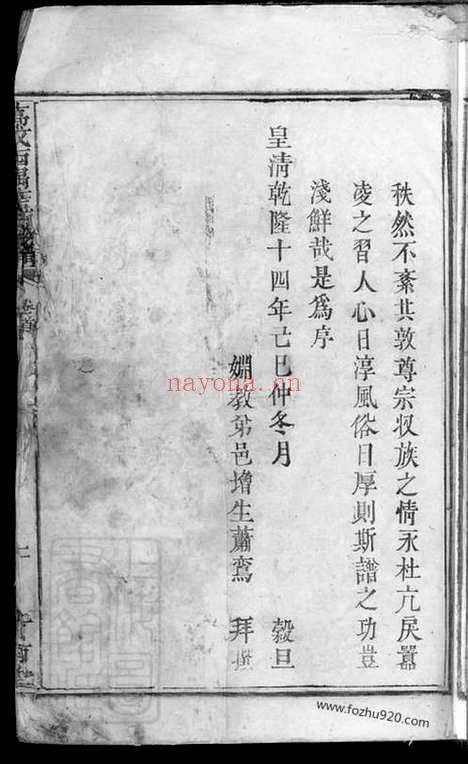 秩然不紊其敦尊宗収族之情永杜亢戾嚣
凌之習人心日淳風俗日厚則斯譜之功豈
淺鮮哉是爲序
皇清乾隆十四年己巳仲冬月 穀旦
姻教弟邑增生蕭鸞 拜撰
卷首
nayona.cn
www.fozhu920.com